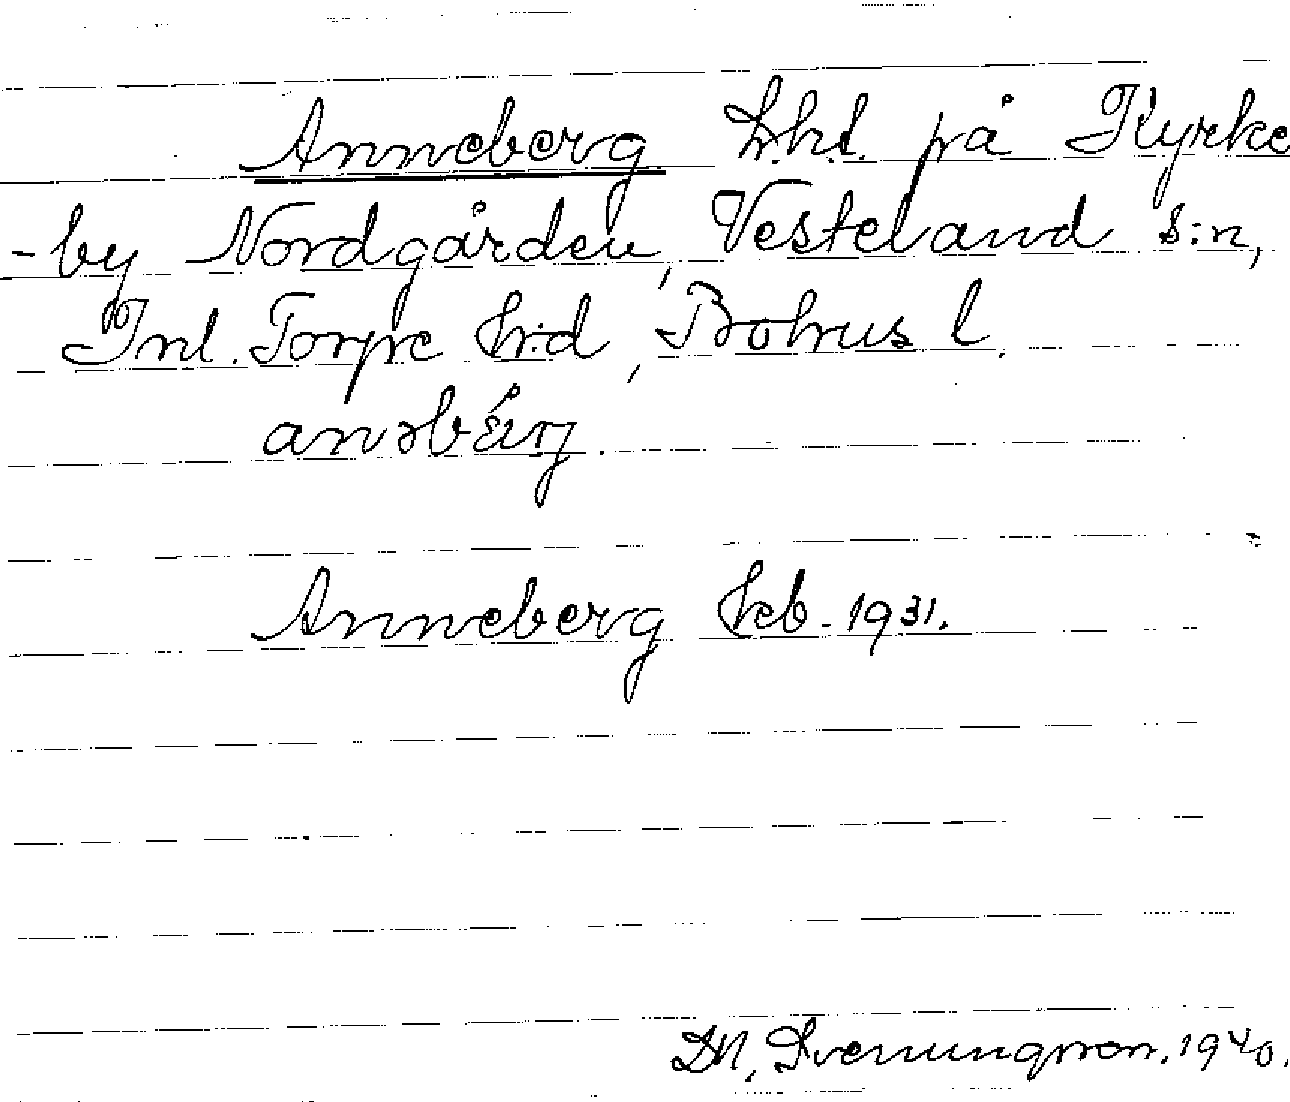 Anneberg l.hl. på Kyrke
-by Nordgården, Vesteland s:n,
Inl. Torpe h:d, Bohus l.
anəbærj.
Anneberg Jeb. 1931.
Svenungsson. 1940.